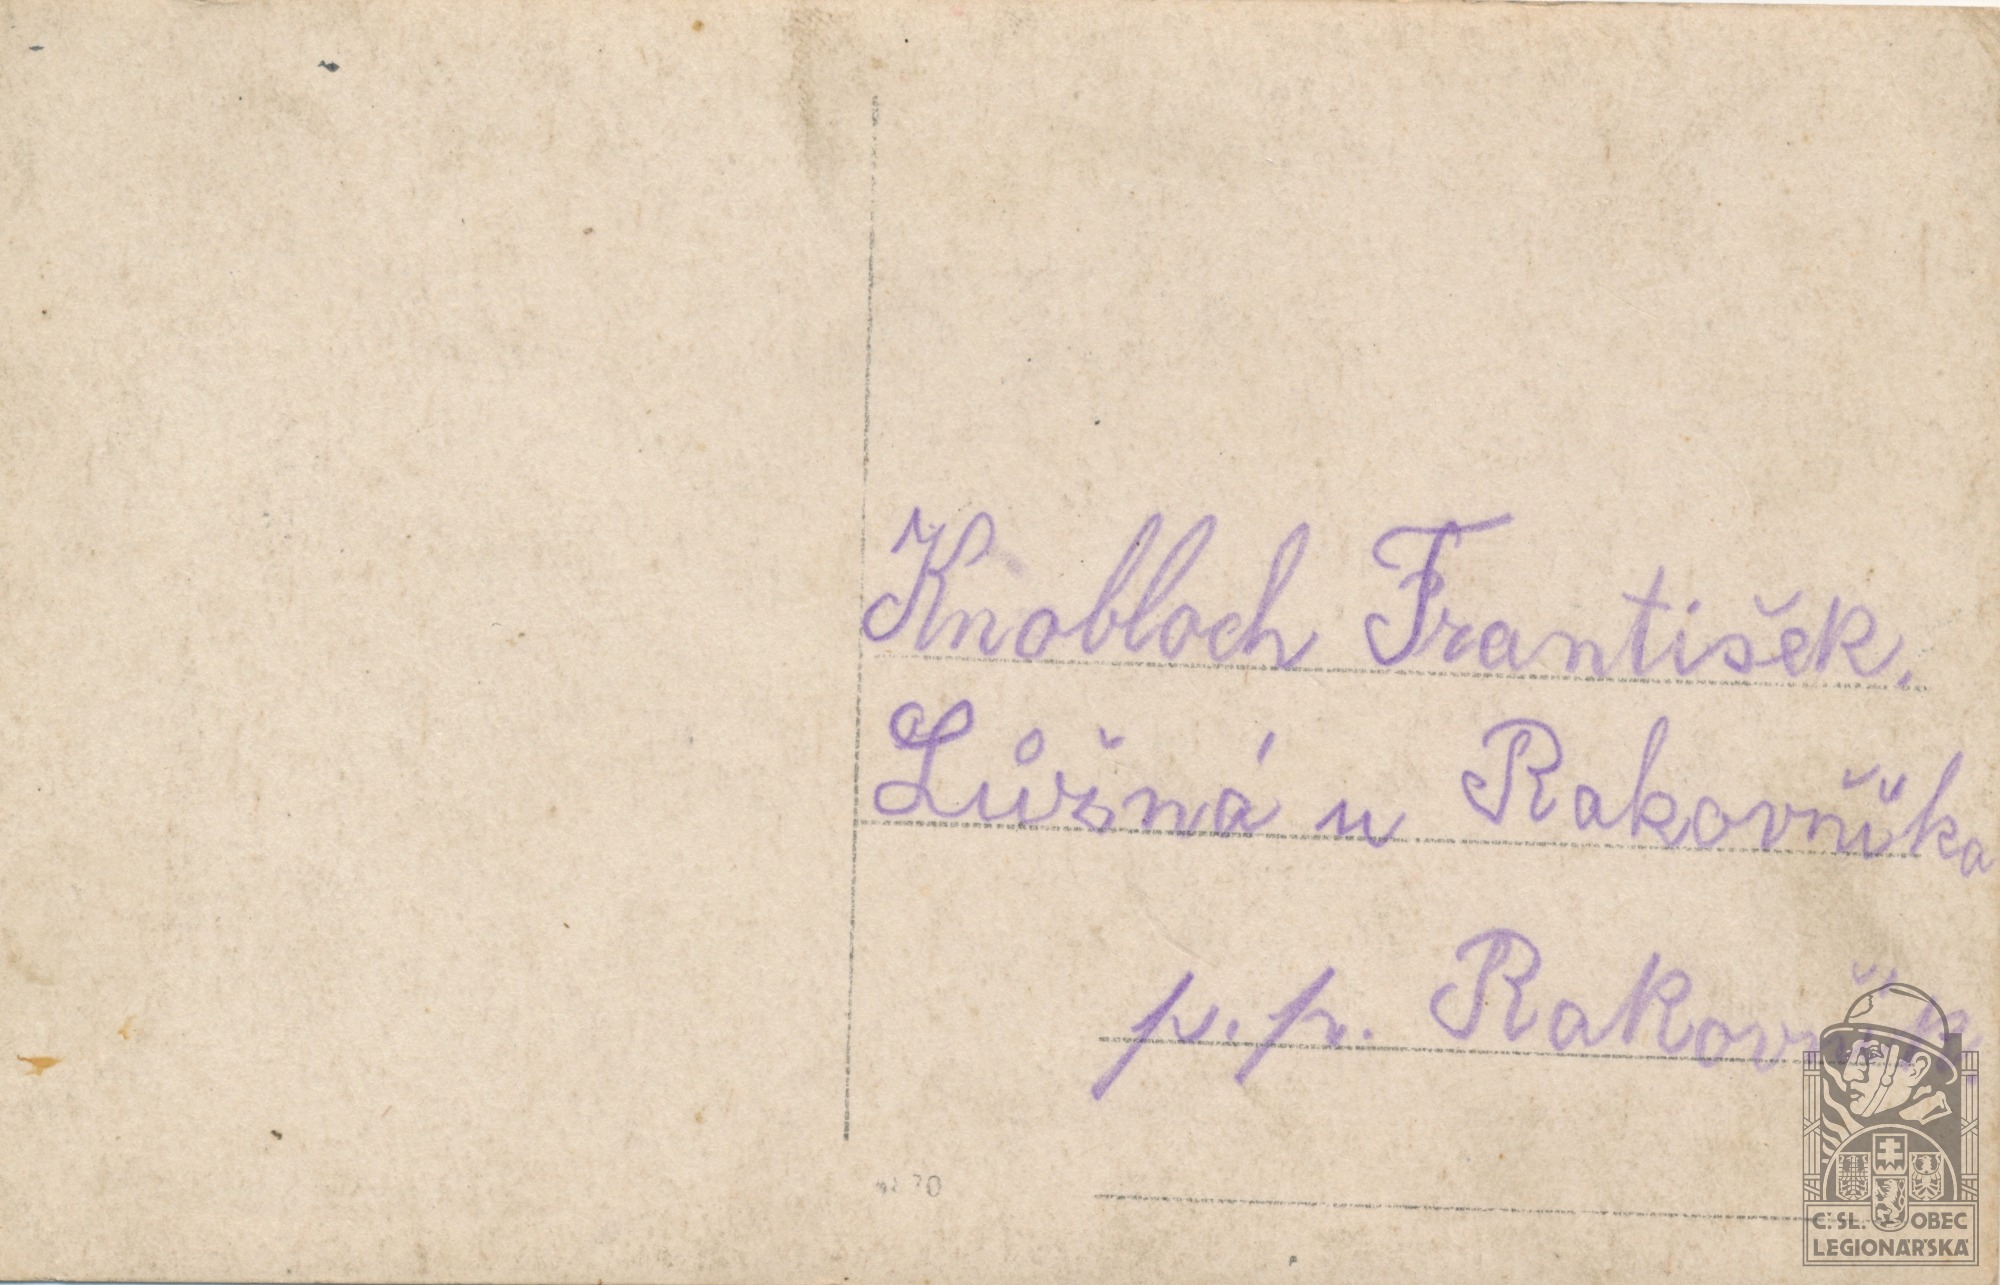 Knobloch František.
Lůžná u Rakovníka
p.p. Rakovník
Č. SL. OBEC
LEGIONÁŘSKÁ